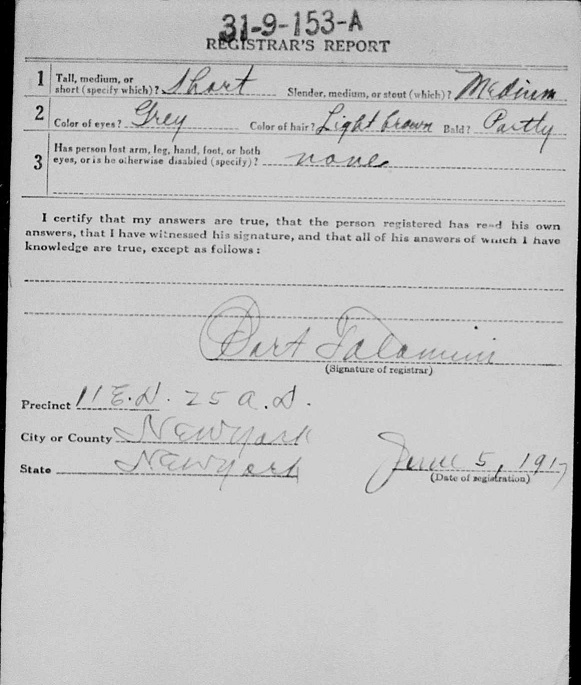 31-9-153-A
REGISTRAR'S REPORT
1 Tall, medium, or short (specify which)? Short Slender, medium, or stout (which)? Medium
2 Color of eyes? Grey Color of hair? Light brown Bald? Partly
3 Has person lost arm, leg, hand, foot, or both
eyes, or is he otherwise disabled (specify)? none
I certify that my answers are true, that the person registered has read his own
answers, that I have witnessed his signature, and that all of his answers of which I have
knowledge are true, except as follows:
Bart
(Signature of registrar)
Precinct 11 E.D. 25 A.D.
City or County New York
State New York June 5, 1917
(Date of registration)